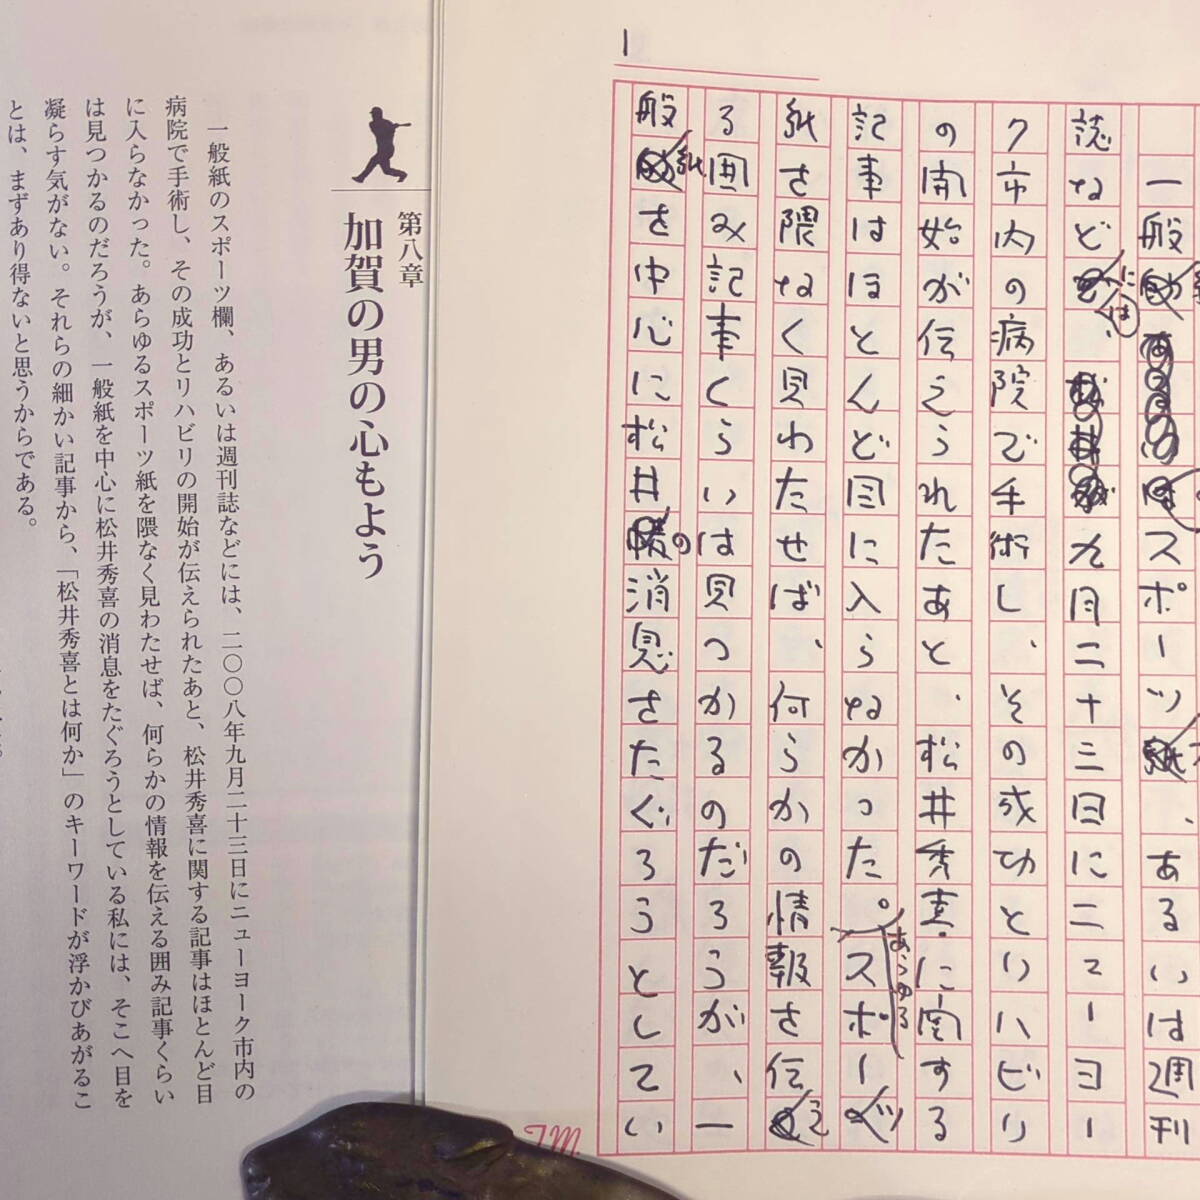 1
一般スポーツ、あるいは週刊
誌などには、九月二十三日にニューヨー
ク市内の病院で手術し、その成功とリハビリ
の開始が伝えられたあと、松井秀喜に関する
記事はほとんど目に入らなかった。あらゆるスポーツ
紙を隈なく見わたせば、何らかの情報を伝え
る囲み記事くらいは見つかるのだろうが、一
般紙を中心に松井の消息をたぐろうとしてい
T.M.
第八章
加賀の男の心もよう
一般紙のスポーツ欄、あるいは週刊誌などには、二〇〇八年九月二十三日にニューヨーク市内の
病院で手術し、その成功とリハビリの開始が伝えられたあと、松井秀喜に関する記事はほとんど目
に入らなかった。あらゆるスポーツ紙を隈なく見わたせば、何らかの情報を伝える囲み記事くらい
は見つかるのだろうが、一般紙を中心に松井秀喜の消息をたぐろうとしている私には、そこへ目を
凝らす気がない。それらの細かい記事から、「松井秀喜とは何か」のキーワードが浮かびあがるこ
とは、まずあり得ないと思うからである。